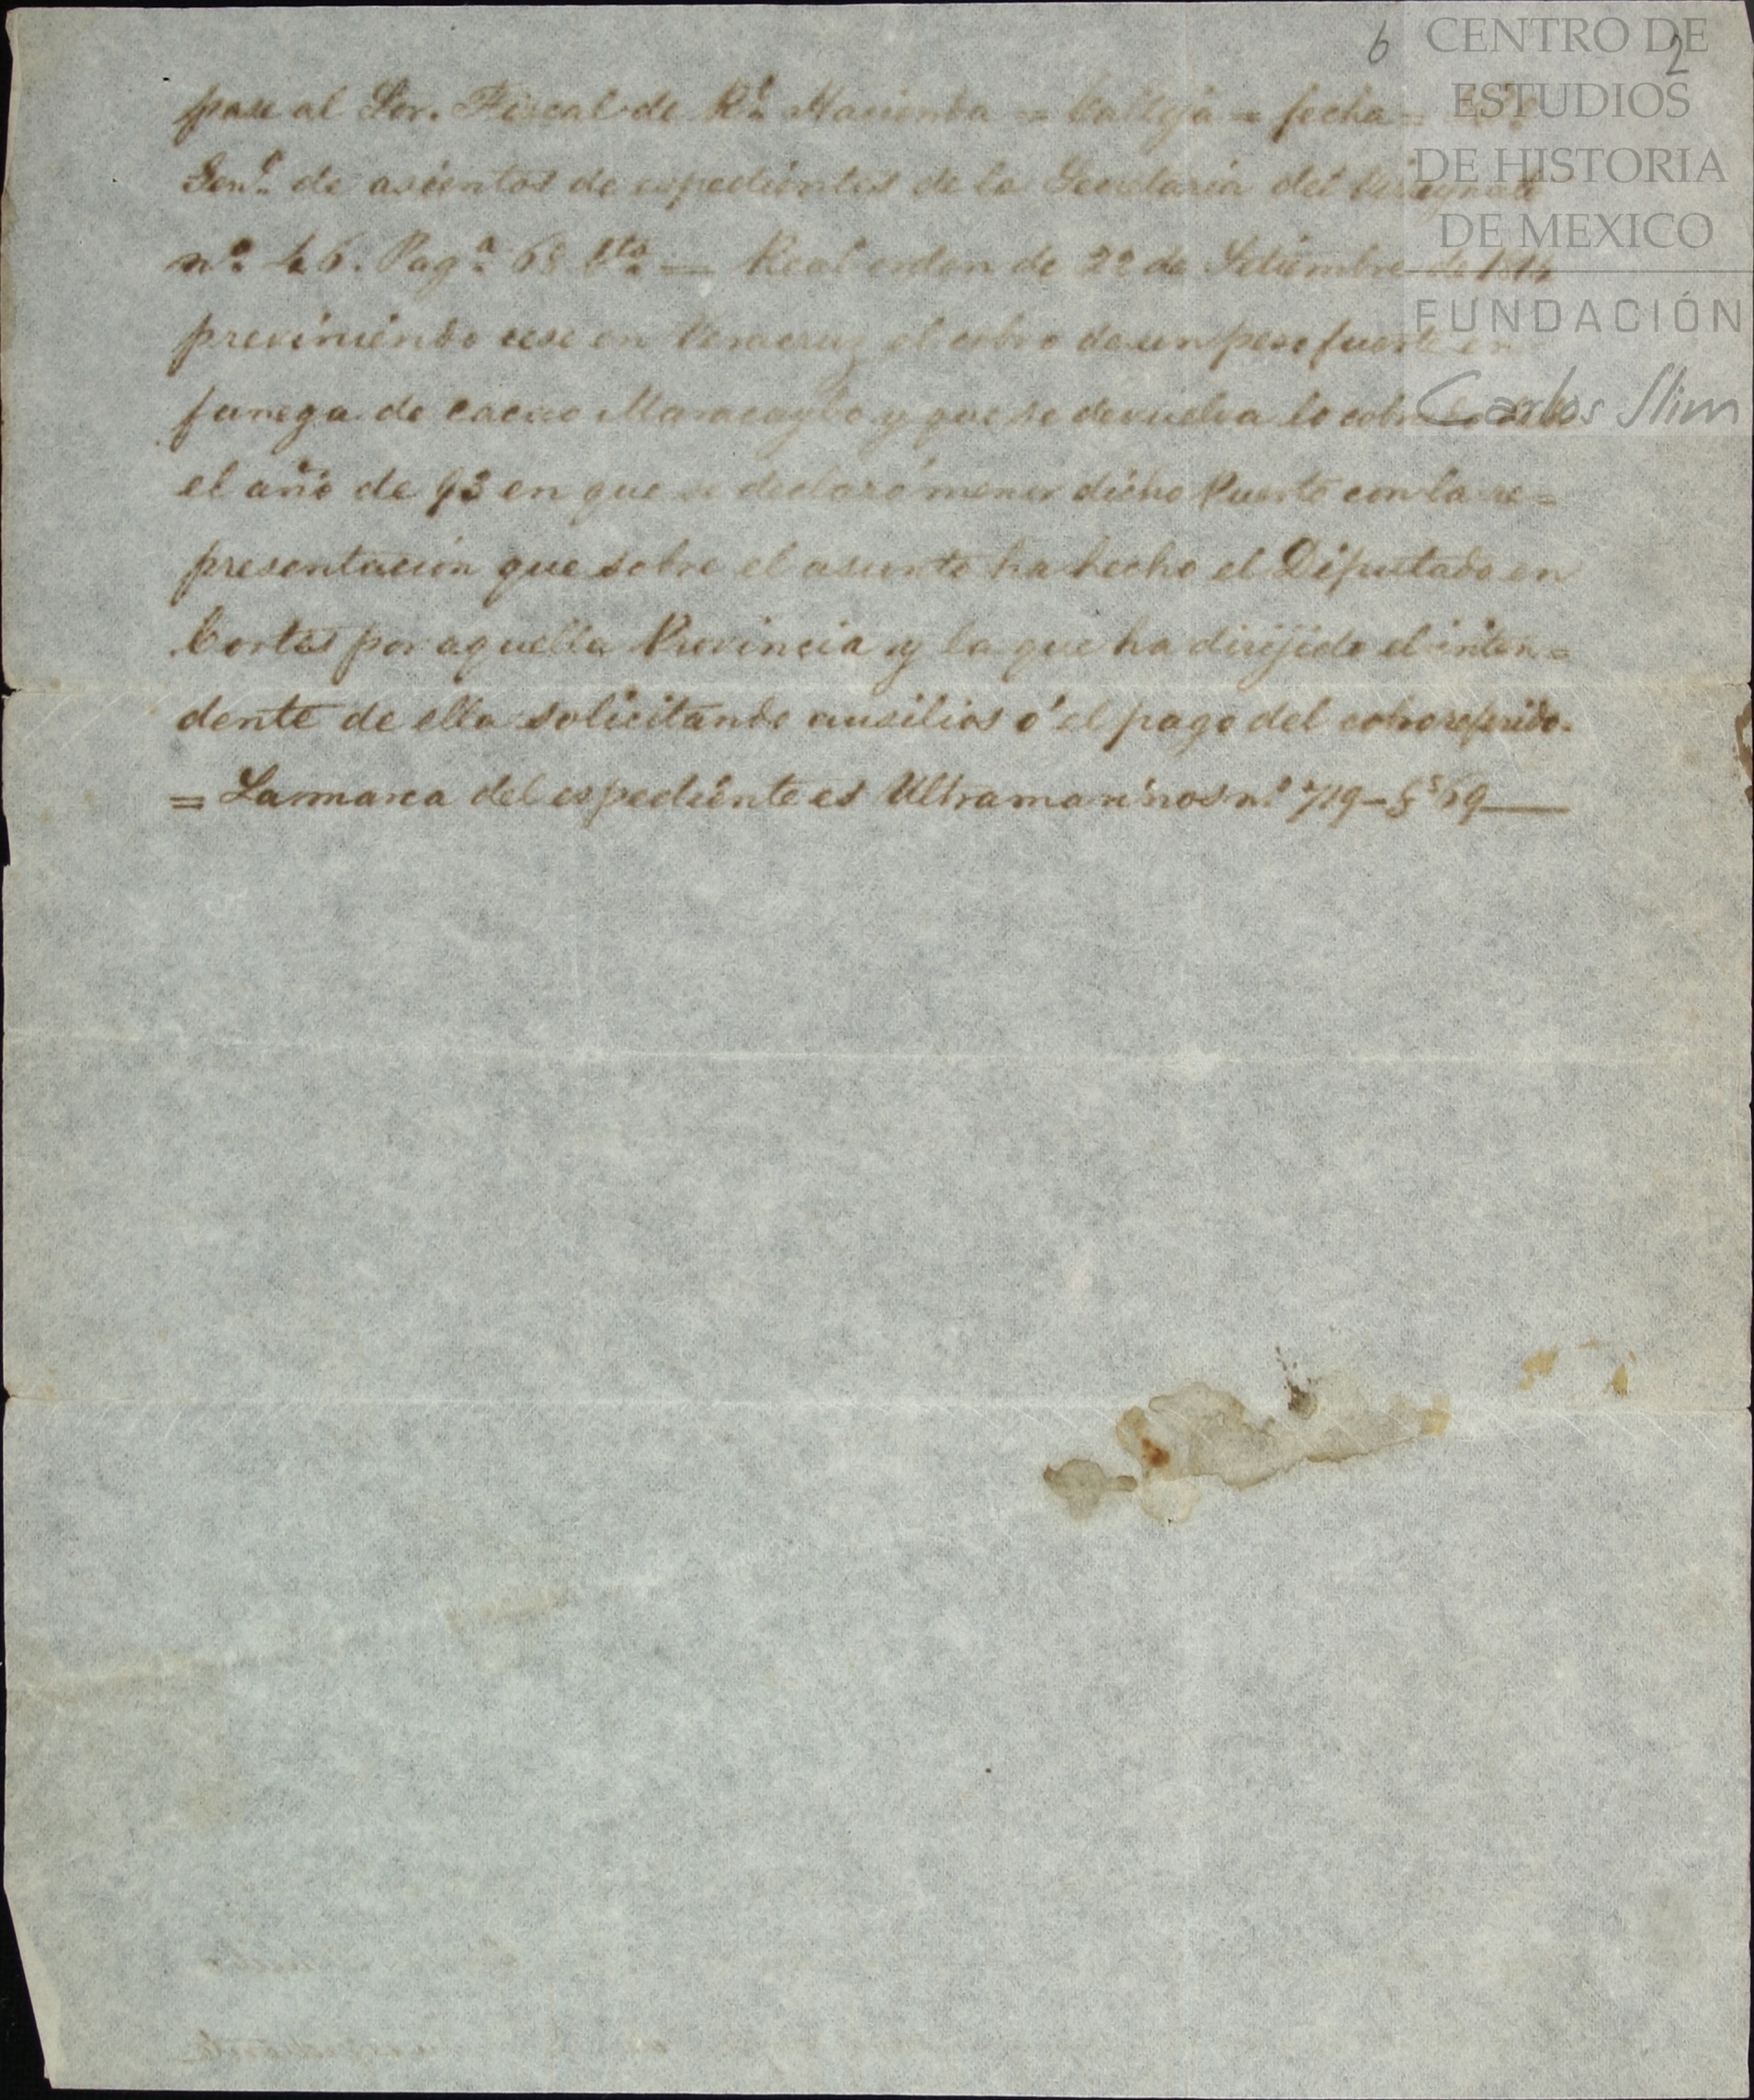 6 2
CENTRO DE
ESTUDIOS
DE HISTORIA
DE MEXICO
FUNDACIÓN
Carlos Slim
pase al Sor. Fiscal de Rl. Hacienda = Calleja = fecha =
de asientos de espedientes de la Secretaria del Vireynato
no. 46. Paga. 68 bta. — Real orden de 22 de Setiembre de 1814
previniendo cese en Veracruz el cobro de un peso fuerte en
fanega de cacao Maracaybo y que se devuelva lo cobrado
el año de 93 en que se declaró menor dicho Puerto con la re=
presentacion que sobre el asunto ha hecho el Diputado en
Cortes por aquella Provincia y la que ha dirijido el inten=
dente de ella solicitando ausilios ó el pago del cobro referido.
= La marca del espediente es Ultramarinos n.o 719 - fs 69 —